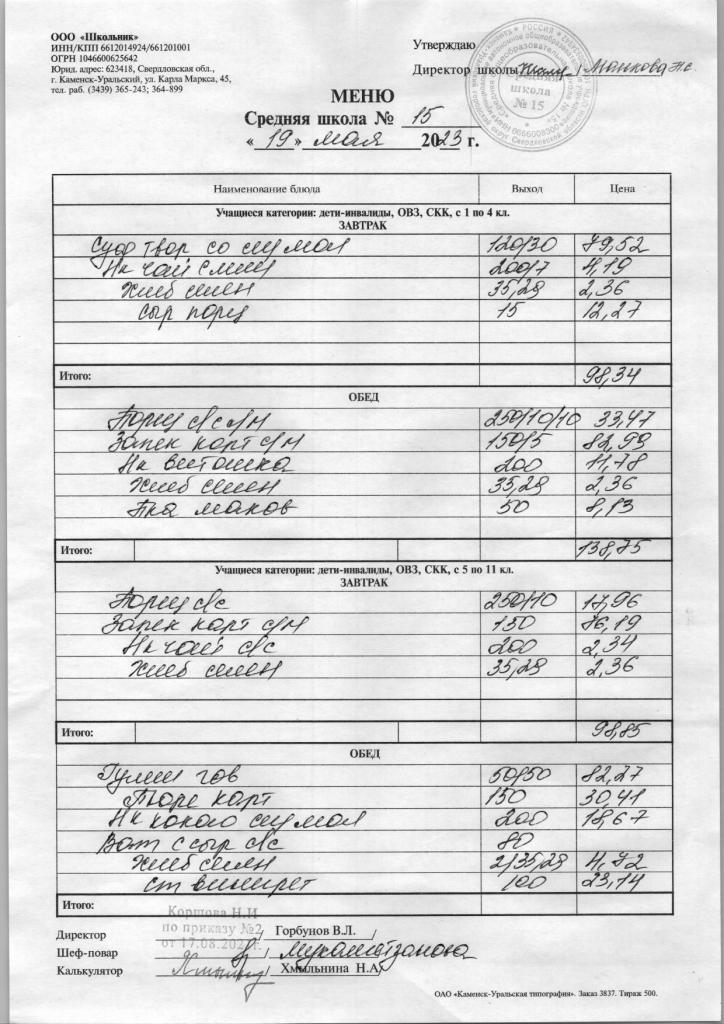 ООО «Школьник»
ИНН/КПП 6612014924/661201001
ОГРН 1046600625642
Юрид. адрес: 623418, Свердловская обл.,
г. Каменск-Уральский, ул. Карла Маркса, 45,
тел. раб. (3439) 365-243; 364-899
Утверждаю
Директор школы
школа
№ 15
МЕНЮ
Средняя школа № 15
« 19 » мая 2023 г.
Наименование блюда Выход Цена
Учащиеся категории: дети-инвалиды, ОВЗ, СКК, с 1 по 4 кл.
ЗАВТРАК
Суф твор со сгу мол 120/30 79,52
Нк чай с лим 200/7 4,19
Хлеб 35,28 2,36
Сыр порц 15 12,27
Итого: 98,34
ОБЕД
250/10/10 33,47
Запек карт с/м 150/5 82,99
Нк витошка 200 11,78
Хлеб 35,28 2,36
маков 50 8,13
Итого: 138,75
Учащиеся категории: дети-инвалиды, ОВЗ, СКК, с 5 по 11 кл.
ЗАВТРАК
250/10 17,96
Запек карт с/м 150 76,19
Нк чай с/с 200 2,34
Хлеб 35,28 2,36
Итого: 98,85
ОБЕД
Гуляш гов 50/50 82,27
Пюре карт 150 30,41
Нк какао сгу мол 200 18,67
Ват с сыр с/с 80
Хлеб 2/35,28 4,72
Ст винегрет 100 23,14
Итого:
Коршова Н.И
по приказу №2
Директор / Горбунов В.Л. /
Шеф-повар
Калькулятор / Хмыльнина Н.А/
ОАО «Каменск-Уральская типография». Заказ 3837. Тираж 500.